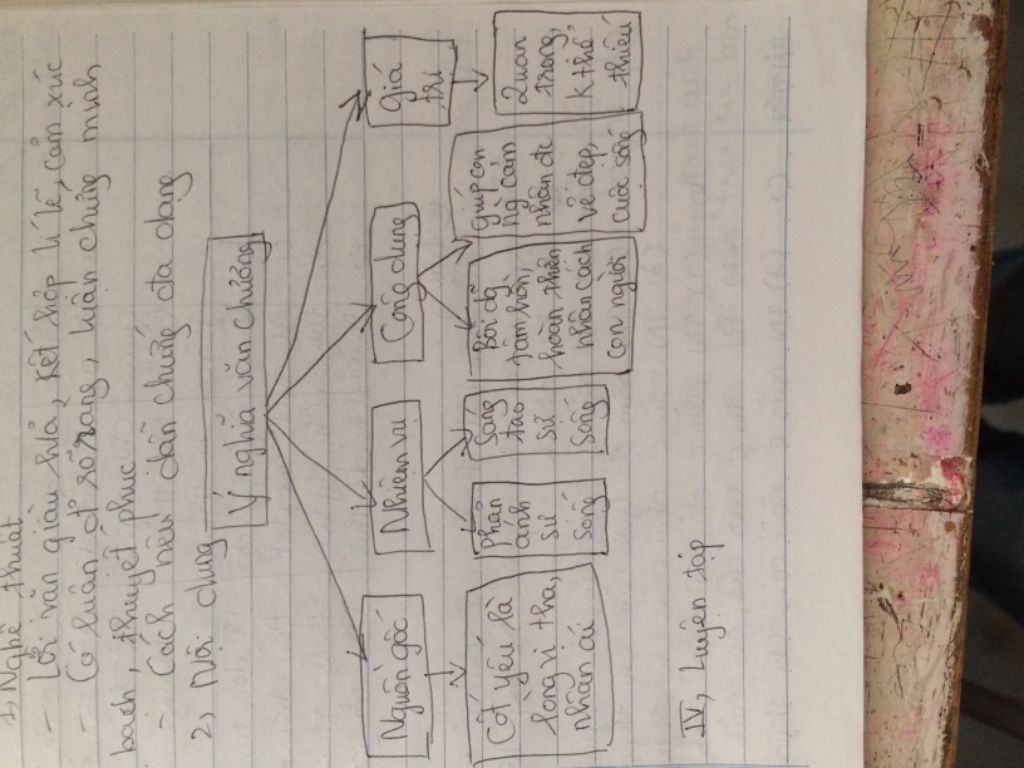 1, Nghệ thuật
- Lối văn giàu h/ả, kết hợp lí lẽ, cảm xúc
- Có luận đ' rõ ràng, luận chứng minh
bạch, thuyết phục
- Cách nêu dẫn chứng đa dạng
2, Nội dung
Ý nghĩa văn chương
Nguồn gốc
Nhiệm vụ
Công dụng
Giá
trị
Cốt yếu là
lòng vị tha,
nhân ái
Phản
ánh
sự
sống
Sáng
tạo
sự
sống
Bồi dg
tâm hồn,
hoàn thiện
nhân cách
con người
Giúp con
ng cảm
nhận đc
vẻ đẹp,
của sống
Quan
trọng,
k thể
thiếu
IV, Luyện tập